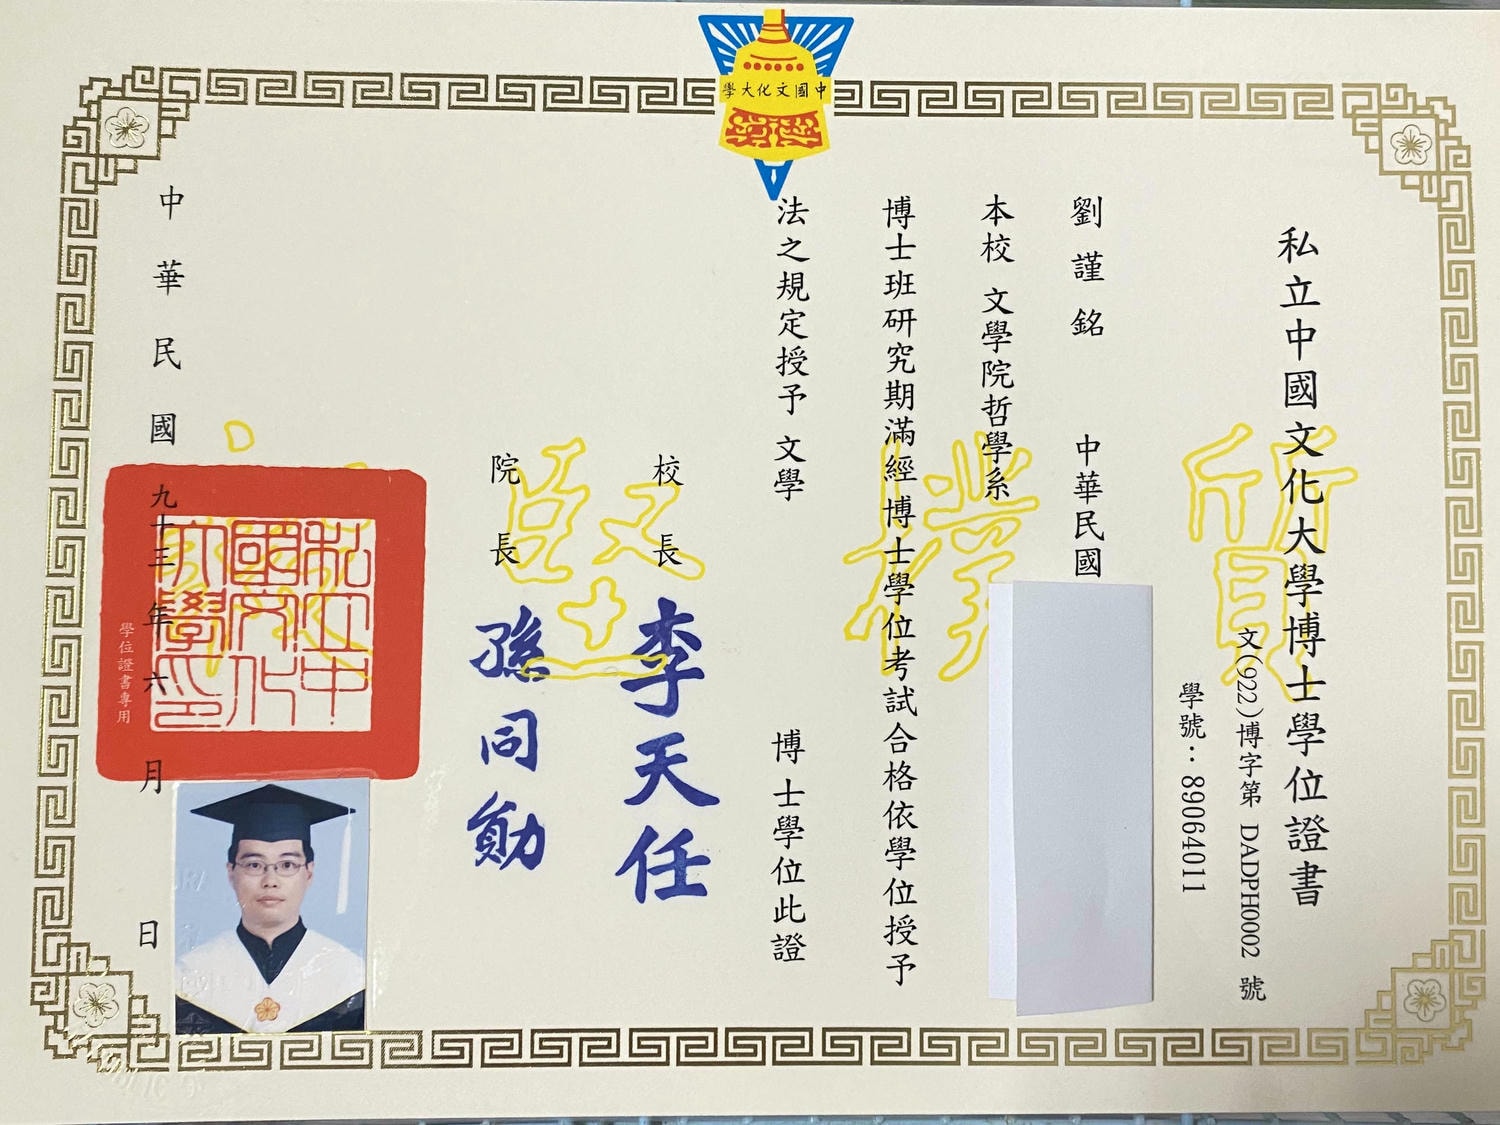 中國文化大學
私立中國文化大學博士學位證書
文(922)博字第 DADPH0002 號
學號：89064011
劉謹銘 中華民國
本校 文學院哲學系
博士班研究期滿經博士學位考試合格依學位授予
法之規定授予 文學 博士學位此證
校長 李天任
院長 孫同勛
中華民國九十三年六月 日
質樸堅毅
私立中
國文化
大學印
學位證書專用